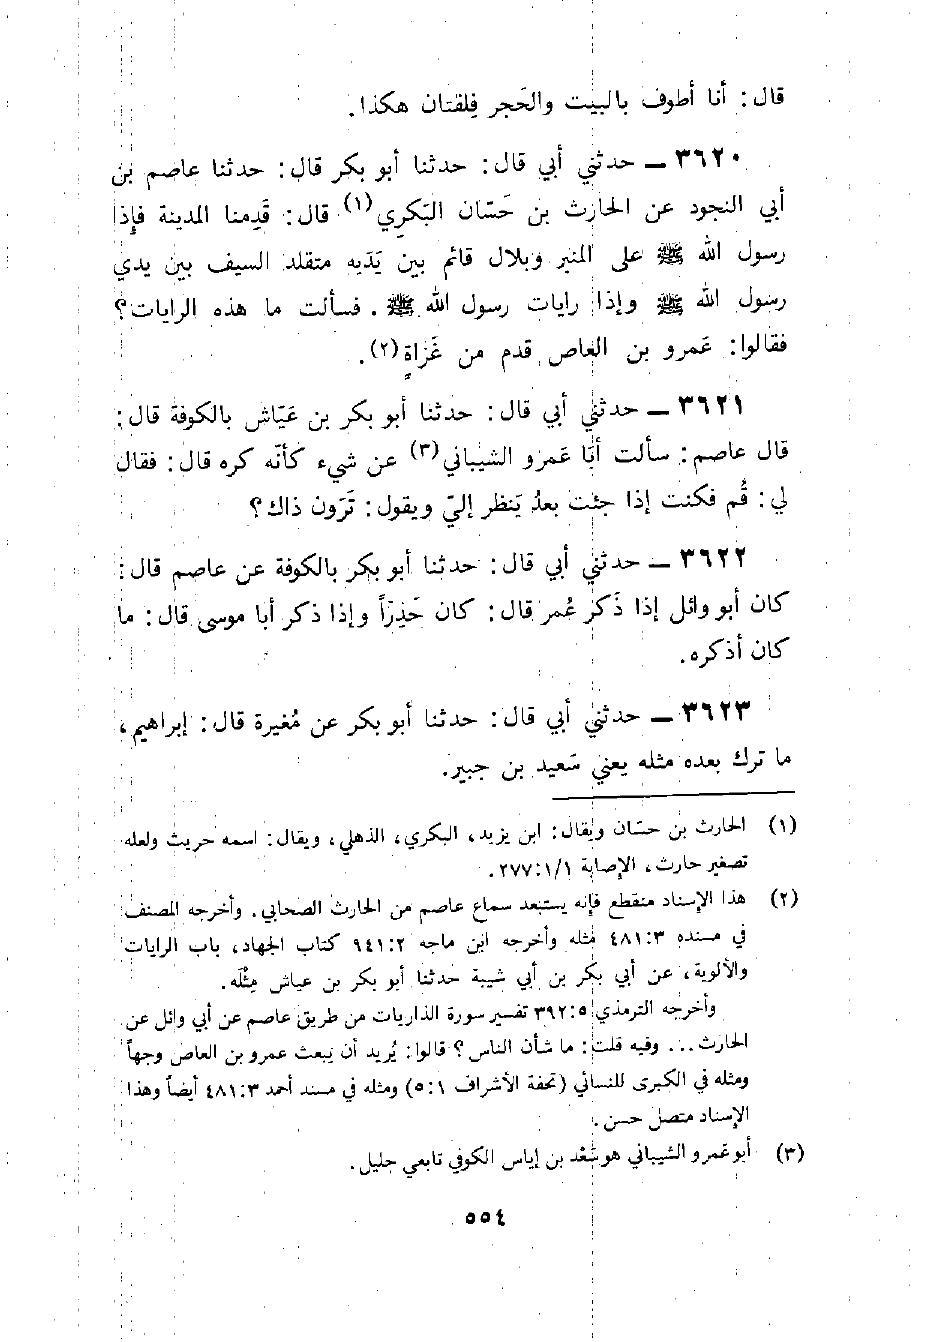 قال: أنا أطوف بالبيت والحَجر فلفتان هكذا.
٣٦٢٠ ــ حدثني أبي قال: حدثنا أبو بكر قال: حدثنا عاصم بن
أبي النجود عن الحارث بن حَسّان البَكرِي(١) قال: قَدِمنا المدينة فإِذا
رسول الله ﷺ على المنبر وبلال قائم بين يَدَيه متقلد السيف بين يدي
رسول الله ﷺ وإذا رايات رسول الله ﷺ. فسألت ما هذه الرايات؟
فقالوا: عَمرو بن العاص قدم من غَزاةٍ(٢).
٣٦٢١ ــ حدثني أبي قال: حدثنا أبو بكر بن عَيّاش بالكوفة قال:
قال عاصم: سألت أبا عَمرو الشيباني(٣) عن شيء كأنّه كره قال: فقال
لي: قُم فكنت إذا جئت بعدُ يَنظر إليّ ويقول: تَرَون ذاك؟
٣٦٢٢ ــ حدثني أبي قال: حدثنا أبو بكر بالكوفة عن عاصم قال:
كان أبو وائل إذا ذَكر عُمر قال: كان حَذِرَاً وإذا ذكر أبا موسى قال: ما
كان أذكره.
٣٦٢٣ ــ حدثني أبي قال: حدثنا أبو بكر عن مُغيرة قال: إبراهيم،
ما ترك بعده مثله يعني سَعيد بن جبير.
(١) الحارث بن حسّان ويقال: ابن يزيد، البكري، الذهلي، ويقال: اسمه حريث ولعله
تصغير حارث، الإصابة ١/١:٢٧٧.
(٢) هذا الإسناد منقطع فإنه يستبعد سماع عاصم من الحارث الصحابي. وأخرجه المصنف
في مسنده ٤٨١:٣ مثله وأخرجه ابن ماجه ٩٤١:٢ كتاب الجهاد، باب الرايات
والألوية، عن أبي بكر بن أبي شيبة حدثنا أبو بكر بن عياش مِثْلَه.
وأخرجه الترمذي ٣٩٢:٥ تفسير سورة الذاريات من طريق عاصم عن أبي وائل عن
الحارث... وفيه قلت: ما شأن الناس؟ قالوا: يُريد أن يبعث عمرو بن العاص وجهاً
ومثله في الكبرى للنسائي (تحفة الأشراف ٥:١) ومثله في مسند أحمد ٤٨١:٣ أيضاً وهذا
الإسناد متصل حسن.
(٣) أبو عَمرو الشيباني هو سَعْد بن إياس الكوفي تابعي جليل.
٥٥٤